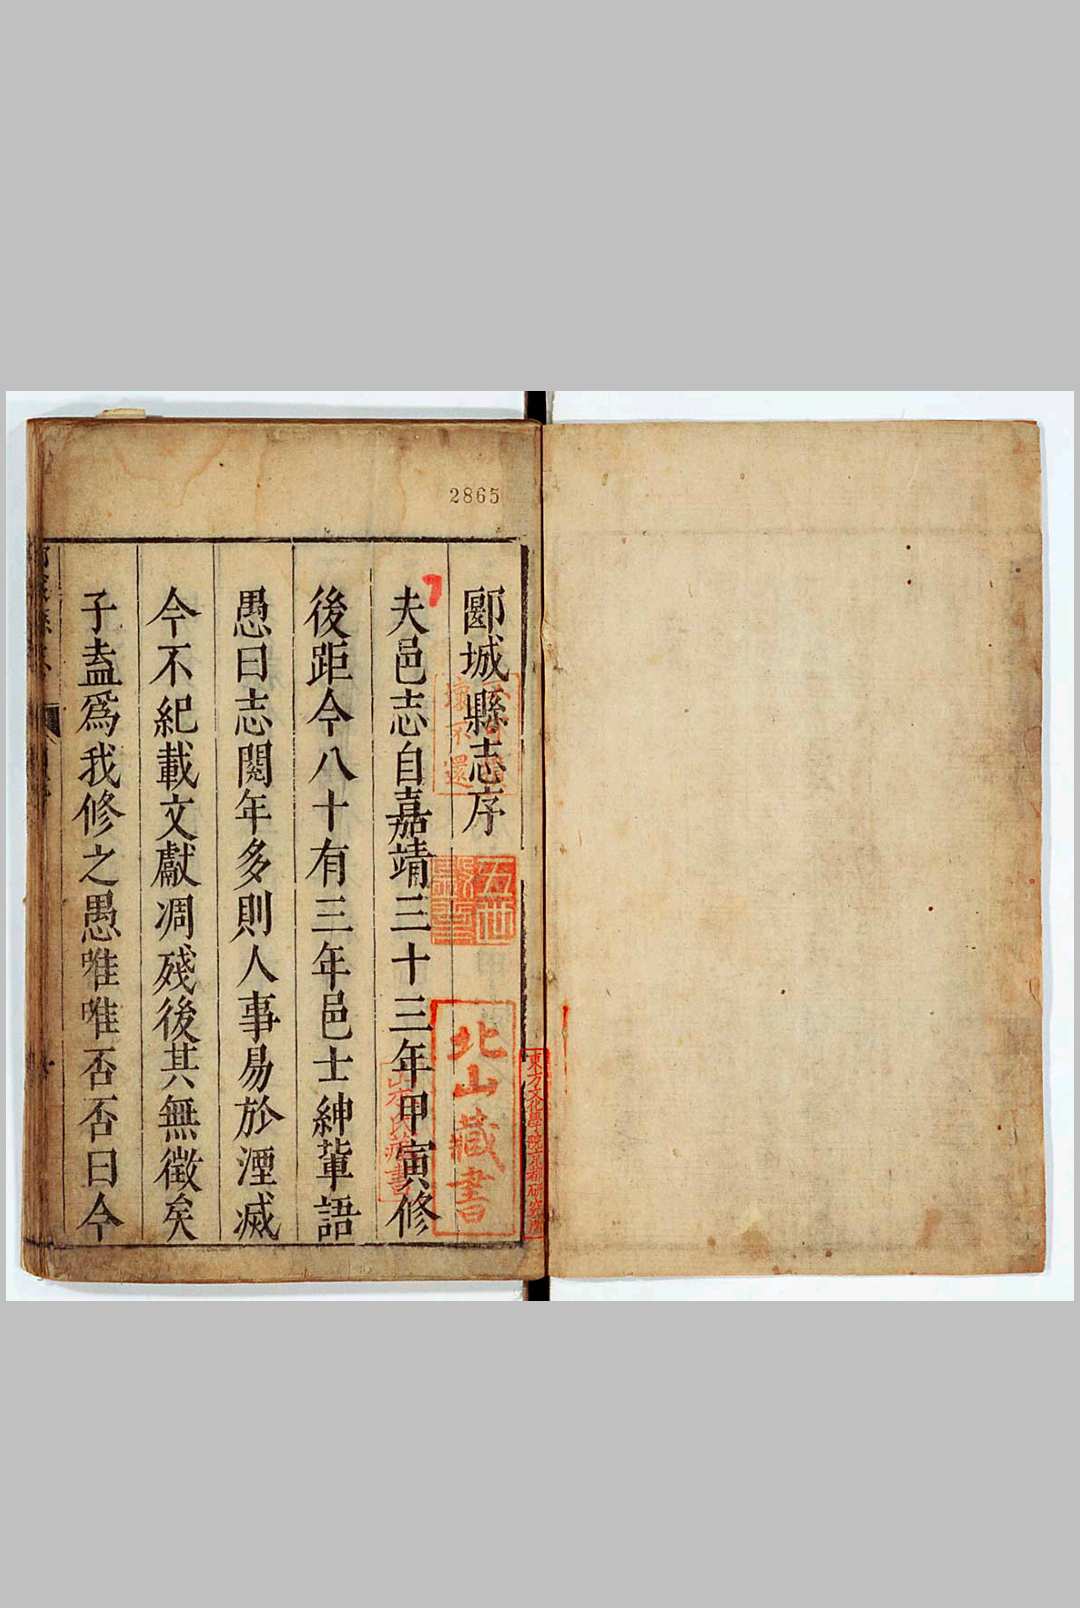 2865
郾城縣志序
夫邑志自嘉靖三十三年甲寅修
後距今八十有三年邑士紳輩語
愚曰志閱年多則人事易於湮滅
今不紀載文獻凋殘後其無徵矣
子盍爲我修之愚唯唯否否曰今
北山藏書
東方文化學院京都研究所